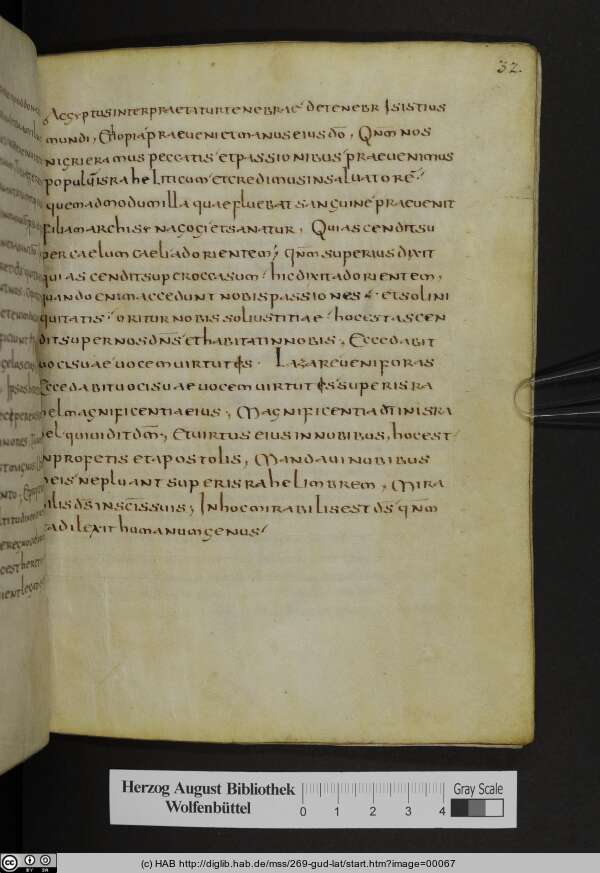 32.
Aegyptus interpraetatur tenebrae de tenebris istius
mundi, Ethiopia praeveniet manus eius dō, Qnm nos
nigri eramus peccatis et passionibus praevenimus
populū israheliticum et credimus in salvatorē
quemadmodum illa quae fluebat sanguine praevenit
filiam archisynagogi et sanatur, Qui ascendit su
per caelum caeli ad orientem; qnm superius dixit
qui ascendit super occasum hic dixit ad orientem,
quando enim accedunt nobis passiones et sol ini
quitatis oritur nobis sol iustitiae hoc est ascen
dit super nos dns et habitat in nobis, Ecce dabit
voci suae vocem virtutis. Lazare veni foras
Ecce dabit voci suae vocem virtutis super isra
hel magnificentia eius, Magnificentia dni in isra
el qui vidit dm, Et virtus eius in nubibus, hoc est
in profetis et apostolis, Mandavi nubibus
meis ne pluant super israhel imbrem, Mira
bilis ds in scis suis; In hoc mirabilis est ds qnm
dilexit humanum genus
Herzog August Bibliothek
Wolfenbüttel
0 1 2 3 4
Gray Scale
(c) HAB http://diglib.hab.de/mss/269-gud-lat/start.htm?image=00067